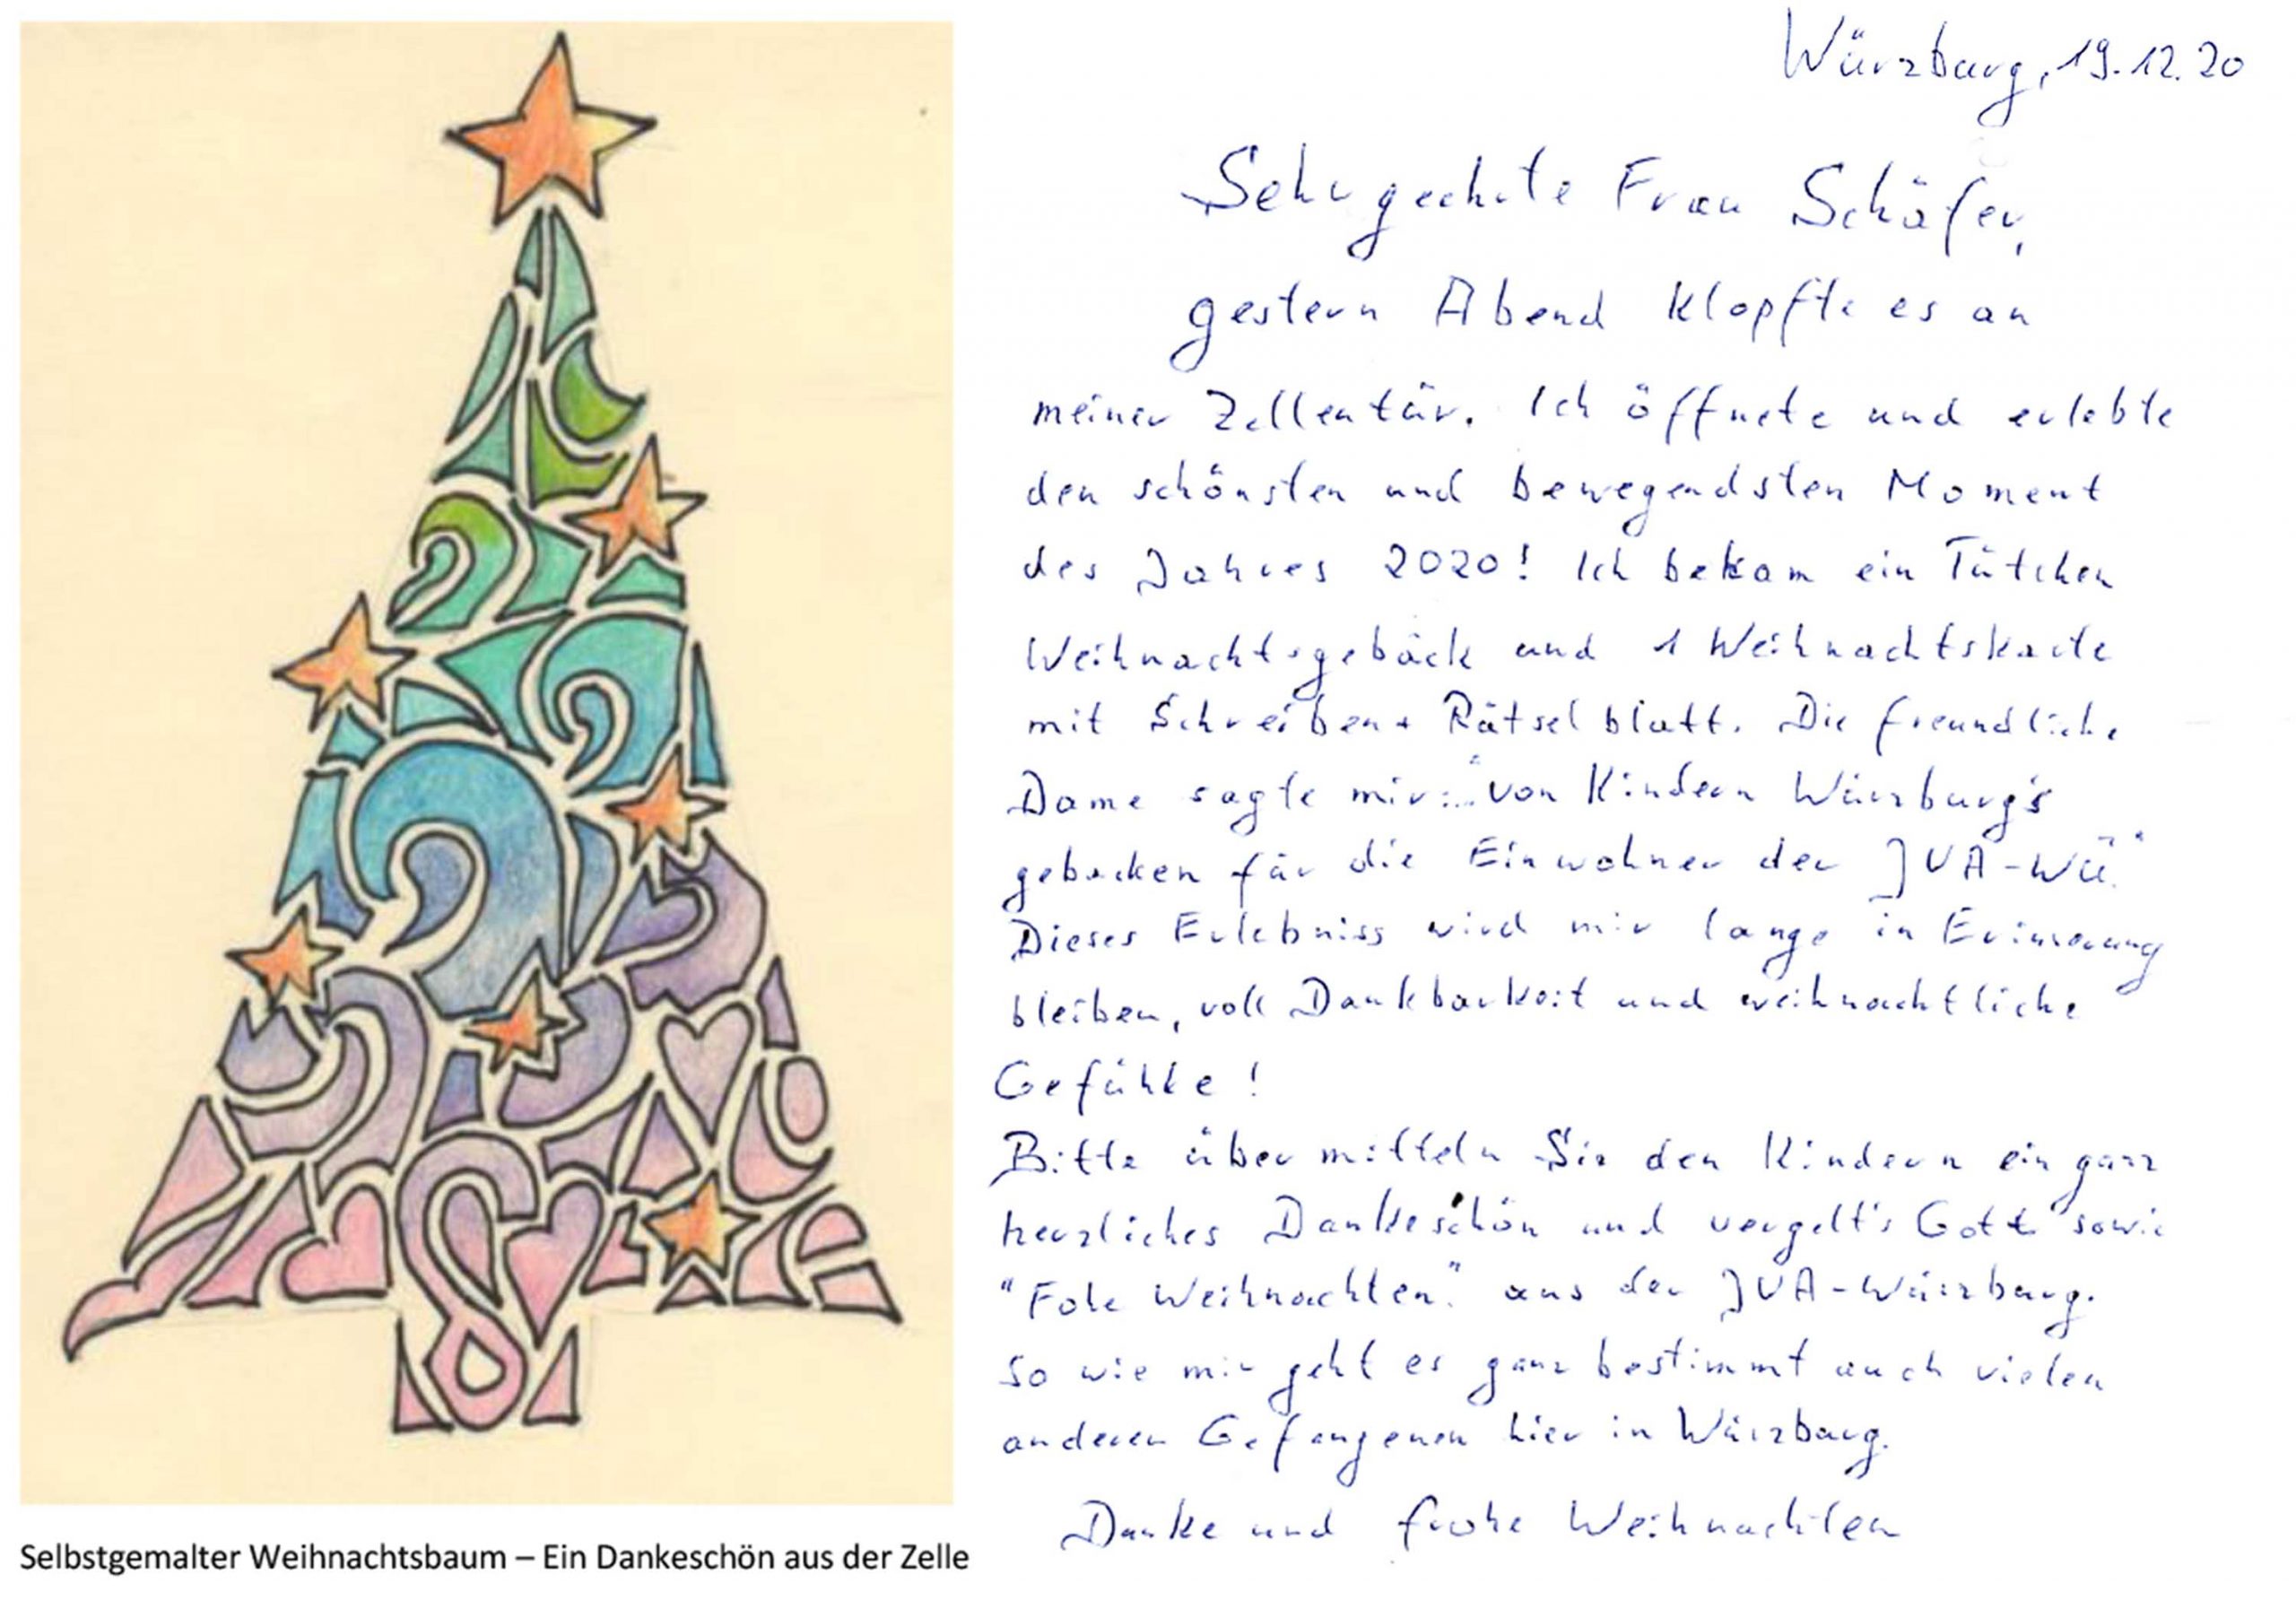 Würzburg, 19.12.20
Sehr geehrte Frau Schäfer,
gestern Abend klopfte es an
meiner Zellentür. Ich öffnete und erlebte
den schönsten und bewegendsten Moment
des Jahres 2020! Ich bekam ein Tütchen
Weihnachtsgebäck und 1 Weihnachtskarte
mit Schreiben + Rätselblatt. Die freundliche
Dame sagte mir: "von Kindern Würzburg's
gebacken für die Einwohner der JVA-Wü."
Dieses Erlebniss wird mir lange in Erinnerung
bleiben, voll Dankbarkeit und weihnachtliche
Gefühle!
Bitte übermitteln Sie den Kindern ein ganz
herzliches Dankeschön und vergelt's Gott" sowie
"Fohe Weihnachten." aus der JVA-Würzburg.
So wie mir geht es ganz bestimmt auch vielen
anderen Gefangenen hier in Würzburg.
Danke und frohe Weihnachten
Selbstgemalter Weihnachtsbaum – Ein Dankeschön aus der Zelle